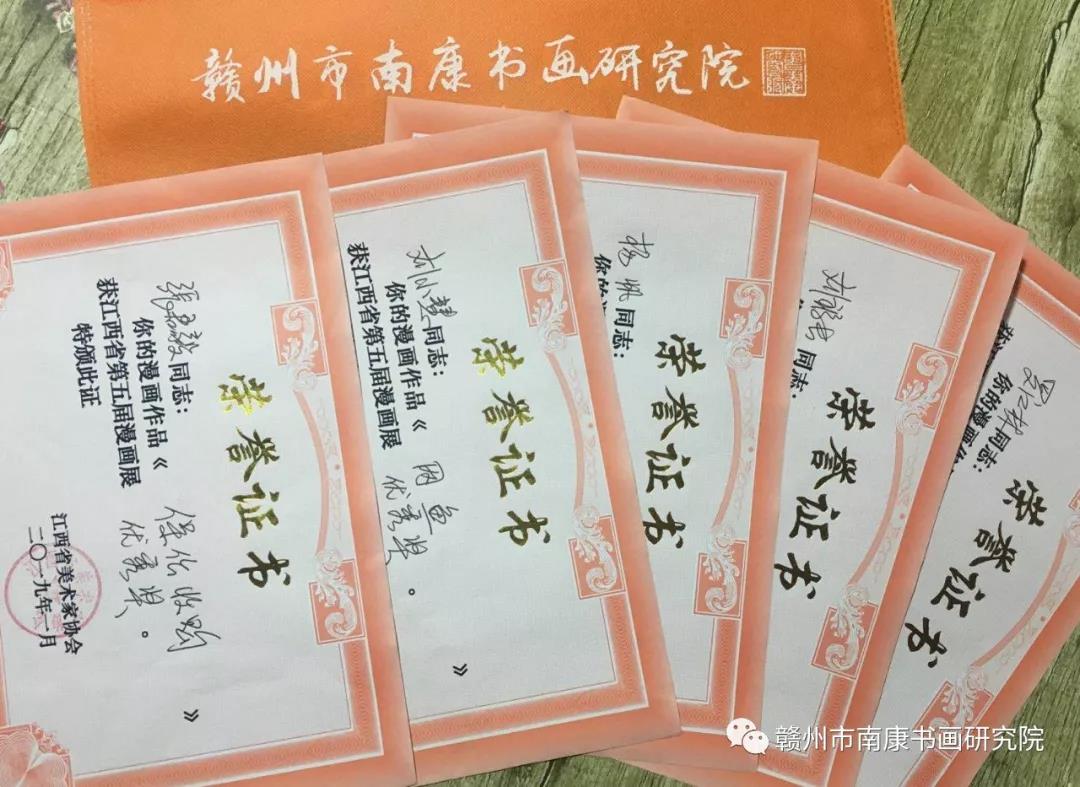 赣州市南康书画研究院
荣誉证书
张君毅同志：
你的漫画作品《保价收购》
获江西省第五届漫画展优秀奖。
特颁此证
江西省美术家协会
二〇一九年一月
荣誉证书
刘小慧同志：
你的漫画作品《困鱼》
获江西省第五届漫画展优秀奖。
荣誉证书
杨帆同志：
你的
荣誉证书
同志：
荣誉证书
同志：
你的漫画作
赣州市南康书画研究院